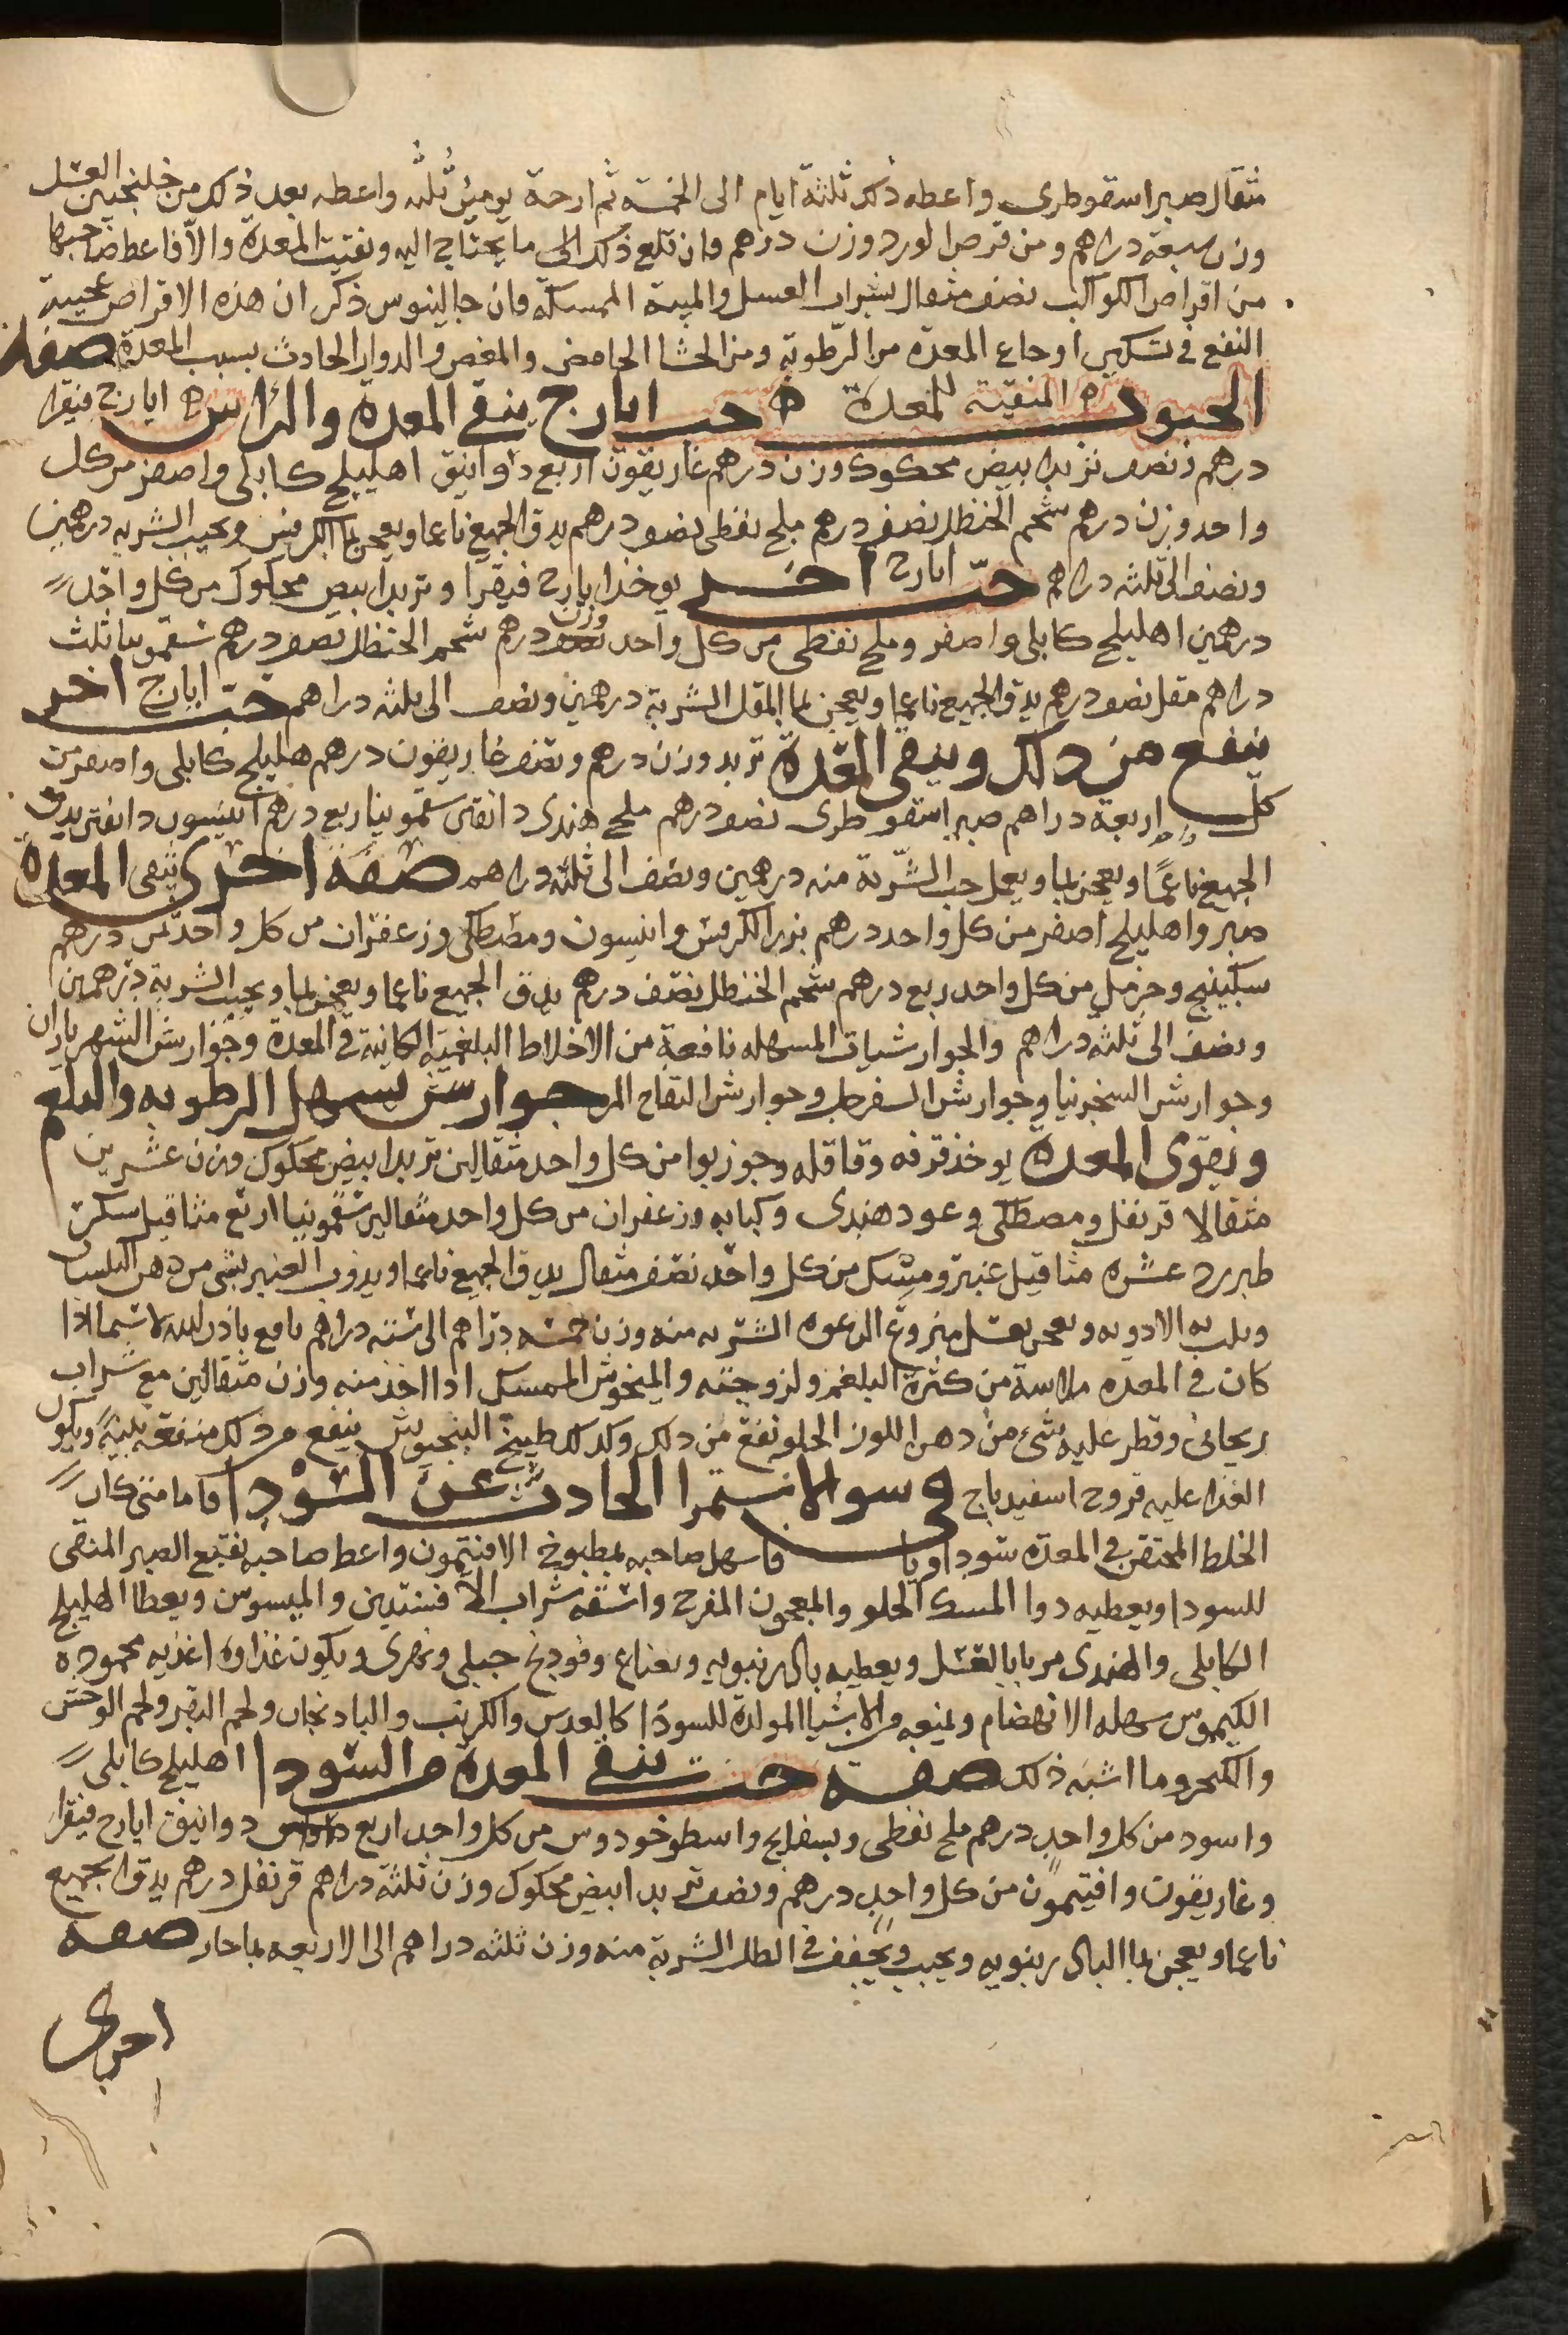 مثقال صبر اسقوطرى واعطه ذلك ثلثة ايام الى الخمسة ثم ارحة يومين ثلثه واعطه بعد ذلك من خلنجبين العسل
وزن سبعة دراهم ومن قرص الورد وزن درهم فان بلغ ذلك الى ما يحتاج اليه ونقيت المعدة والا فاعط صاحبها
من اقراص الكوكب نصف مثقال بشراب العسل والميبة الممسكة فان جالينوس ذكر ان هذه الاقراص عجيبة
النفع فى تسكين اوجاع المعدة من الرطوبة ومن الجشا الحامض والمغص والدوار الحادث بسبب المعدة صفة
الحبوب المنقية للمعدة حب ايارج ينقى المعدة والراس ايارج فيقرا
درهم ونصف تربد ابيض محكوك وزن درهم غاريقون اربع دوانيق اهليلج كابلى واصفر من كل
واحد وزن درهم شحم الحنظل نصف درهم ملح نفطى نصف درهم يدق الجميع ناعما ويعجن بما الكرفس ويحبب الشربه درهمين
ونصف الى ثلثه دراهم حب ايارج اخر يوخذ ايارج فيقرا وتربد ابيض محكوك من كل واحد
درهمين اهليلج كابلى واصفر وملح نفطى من كل واحد وزن درهم شحم الحنظل نصف درهم سقمونيا ثلث
دراهم مقل نصف درهم يدق الجميع ناعما ويعجن بما المقل الشربة درهمين ونصف الى ثلثه دراهم حب ايارج اخر
ينفع من ذلك وينقى المعدة تربد وزن درهم ونصف غاريقون درهم هليلج كابلى واصفر من
كل اربعة دراهم صبر اسقوطرى نصف درهم ملح هندى دانقى سقمونيا ربع درهم انيسون دانقى يدق
الجميع ناعما ويعجن بما ويعمل حب الشربة منه درهمين ونصف الى ثلثه دراهم صفة اخرى ينقى المعدة
صبر واهليلج اصفر من كل واحد درهم بزر الكرفس وانيسون ومصطكى وزعفران من كل واحد ثمن درهم
سكبينج وحرمل من كل واحد ربع درهم شحم الحنظل نصف درهم يدق الجميع ناعما ويعجن بما ويحبب الشربة درهمين
ونصف الى ثلثه دراهم والجوارشيات المسهله نافعة من الاخلاط البلغمية الكاينة فى المعدة وجوارش الشهرياران
وجوارش السنجرنيا وجوارش السفرجل وجوارش التفاح المر جوارش يسهل الرطوبه والبلغم
ويقوى المعدة يوخذ قرفه وقاقله وجوز بوا من كل واحد مثقالين تربد ابيض محكوك وزن عشرين
مثقالا قرنفل ومصطكى وعود هندى وكبابه وزعفران من كل واحد مثقالين سقمونيا اربع مثاقيل سكر
طبرزد عشره مثاقيل عنبر ومسك من كل واحد نصف مثقال يدق الجميع ناعما ويذوب العنبر بشى من دهن البلسان
ويلت به الادويه ويعجن بعسل منزوع الرغوه الشربه منه وزن خمسه دراهم الى سته دراهم نافع باذن الله لا سيما اذا
كان فى المعده ملاسة من كثرة البلغم ولزوجته والمنخوش الممسك اذا اخذ منه وزن مثقالين مع شراب
ريحانى وقطر عليه شئ من دهن اللوز الحلو نفع من ذلك وكذلك طبيخ البنجبوش ينفع من ذلك منفعه بليغه ويكون
الغذا عليه فروج اسفيدباج فى سو الاستمرا الحادث عن السودا فاما متى كان
الخلط المحتقن فى المعدة سوداويا فاسهل صاحبه بمطبوخ الافتيمون واعط صاحبه نقيع الصبر المنقى
للسودا ويعطيه دوا المسك الحلو والمعجون المفرح واسقه شراب الافسنتين والميسوسن ويعطا الهليلج
الكابلى والهندى مربا بالعسل ويعطيه بالرنبويه ونعناع وفودنج جبلى ونهرى ويكون غذاوه اغذيه محموده
الكيموس سهله الانهضام وتمنعه من الاشيا المولدة للسودا كالعدس والكرنب والباذنجان ولحم البقر ولحم الوحش
والكمر وما اشبه ذلك صفة حب ينقى المعدة من السودا اهليلج كابلى
واسود من كل واحد درهم ملح نفطى وبسفايج واسطوخودوس من كل واحد اربع دوانيق ايارج فيقرا
وغاريقون وافتيمون من كل واحد درهم ونصف تربد ابيض محكوك وزن ثلثة دراهم قرنفل درهم يدق الجميع
ناعما ويعجن بما البالرنبويه ويحبب ويجفف فى الظل الشربة منه وزن ثلثه دراهم الى الاربعه بما حار صفة
اخرى